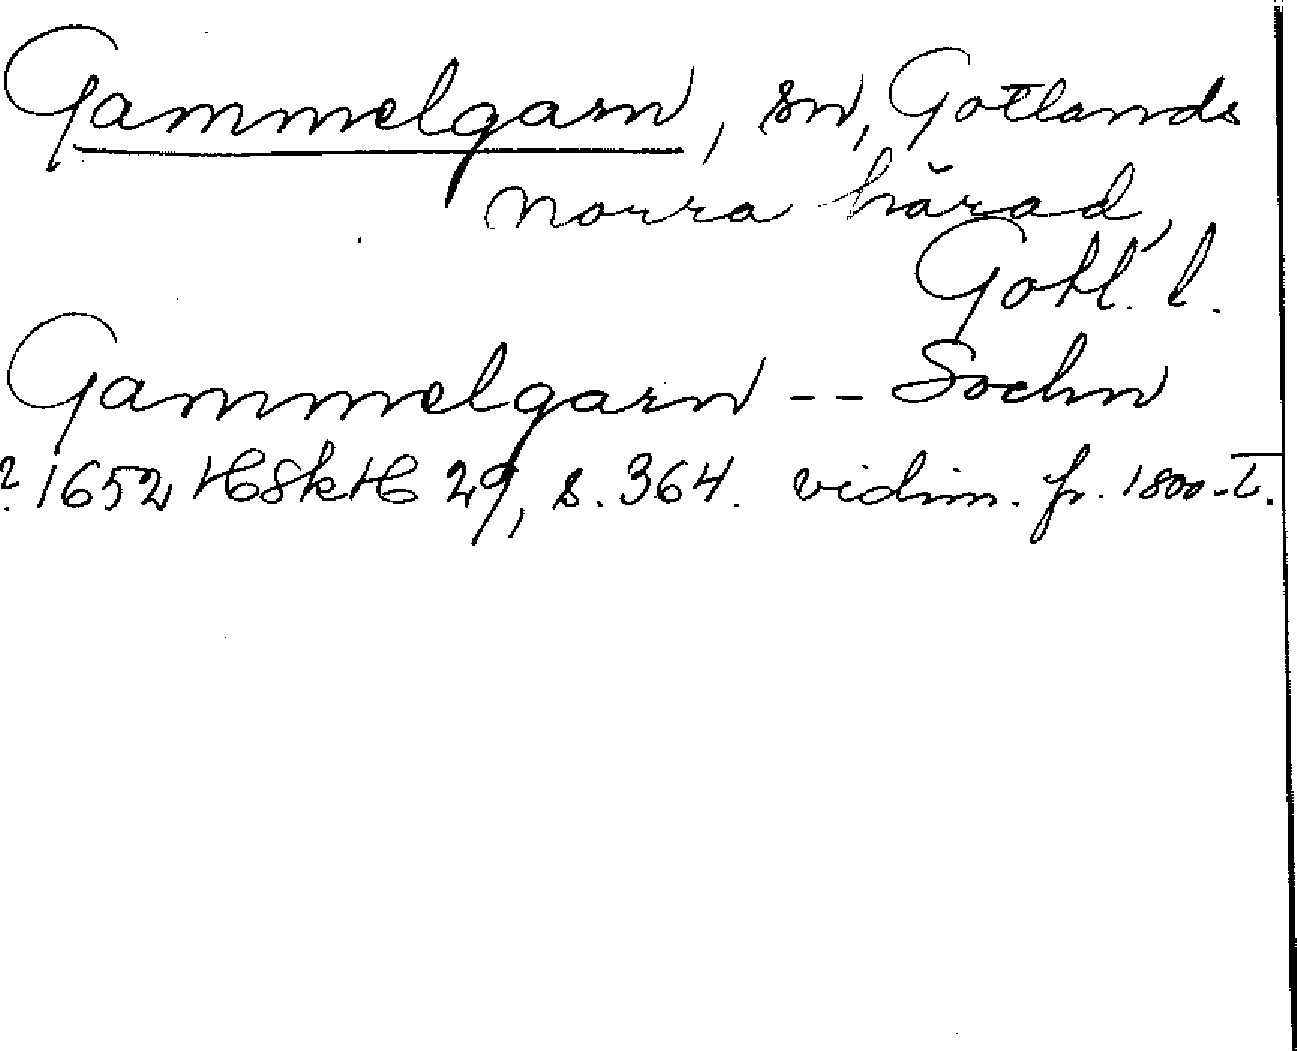 Gammelgarn, sn, Gotlands
norra härad,
Gotl. l.
Gammelgarn -- Sochn
? 1652 HSkH 29, s. 364. vidim. fr. 1800-t.